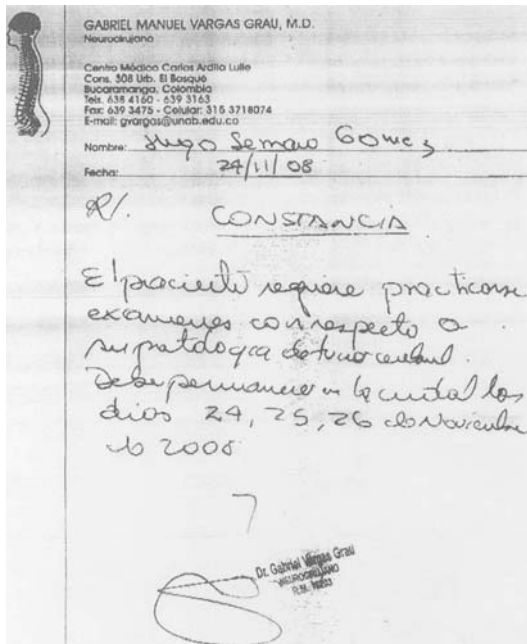 GABRIEL MANUEL VARGAS GRAU, M.D.
Neurocirujano
Centro Médico Carlos Ardila Lulle
Cons. 308 Urb. El Bosque
Bucaramanga, Colombia
Tels. 638 4160 - 639 3163
Fax: 639 3475 - Celular: 315 3718074
E-mail: gvargas@unab.edu.co
Nombre: Gomez
Fecha: 24/11/08
R/.
CONSTANCIA
El paciente requiere practicarse
examenes con respecto a
su patologia cerebral.
Debe permanecer en la ciudad los
dias 24, 25, 26 de Noviembre
de 2008
Dr. Gabriel Vargas Grau
NEUROCIRUJANO
R.M.